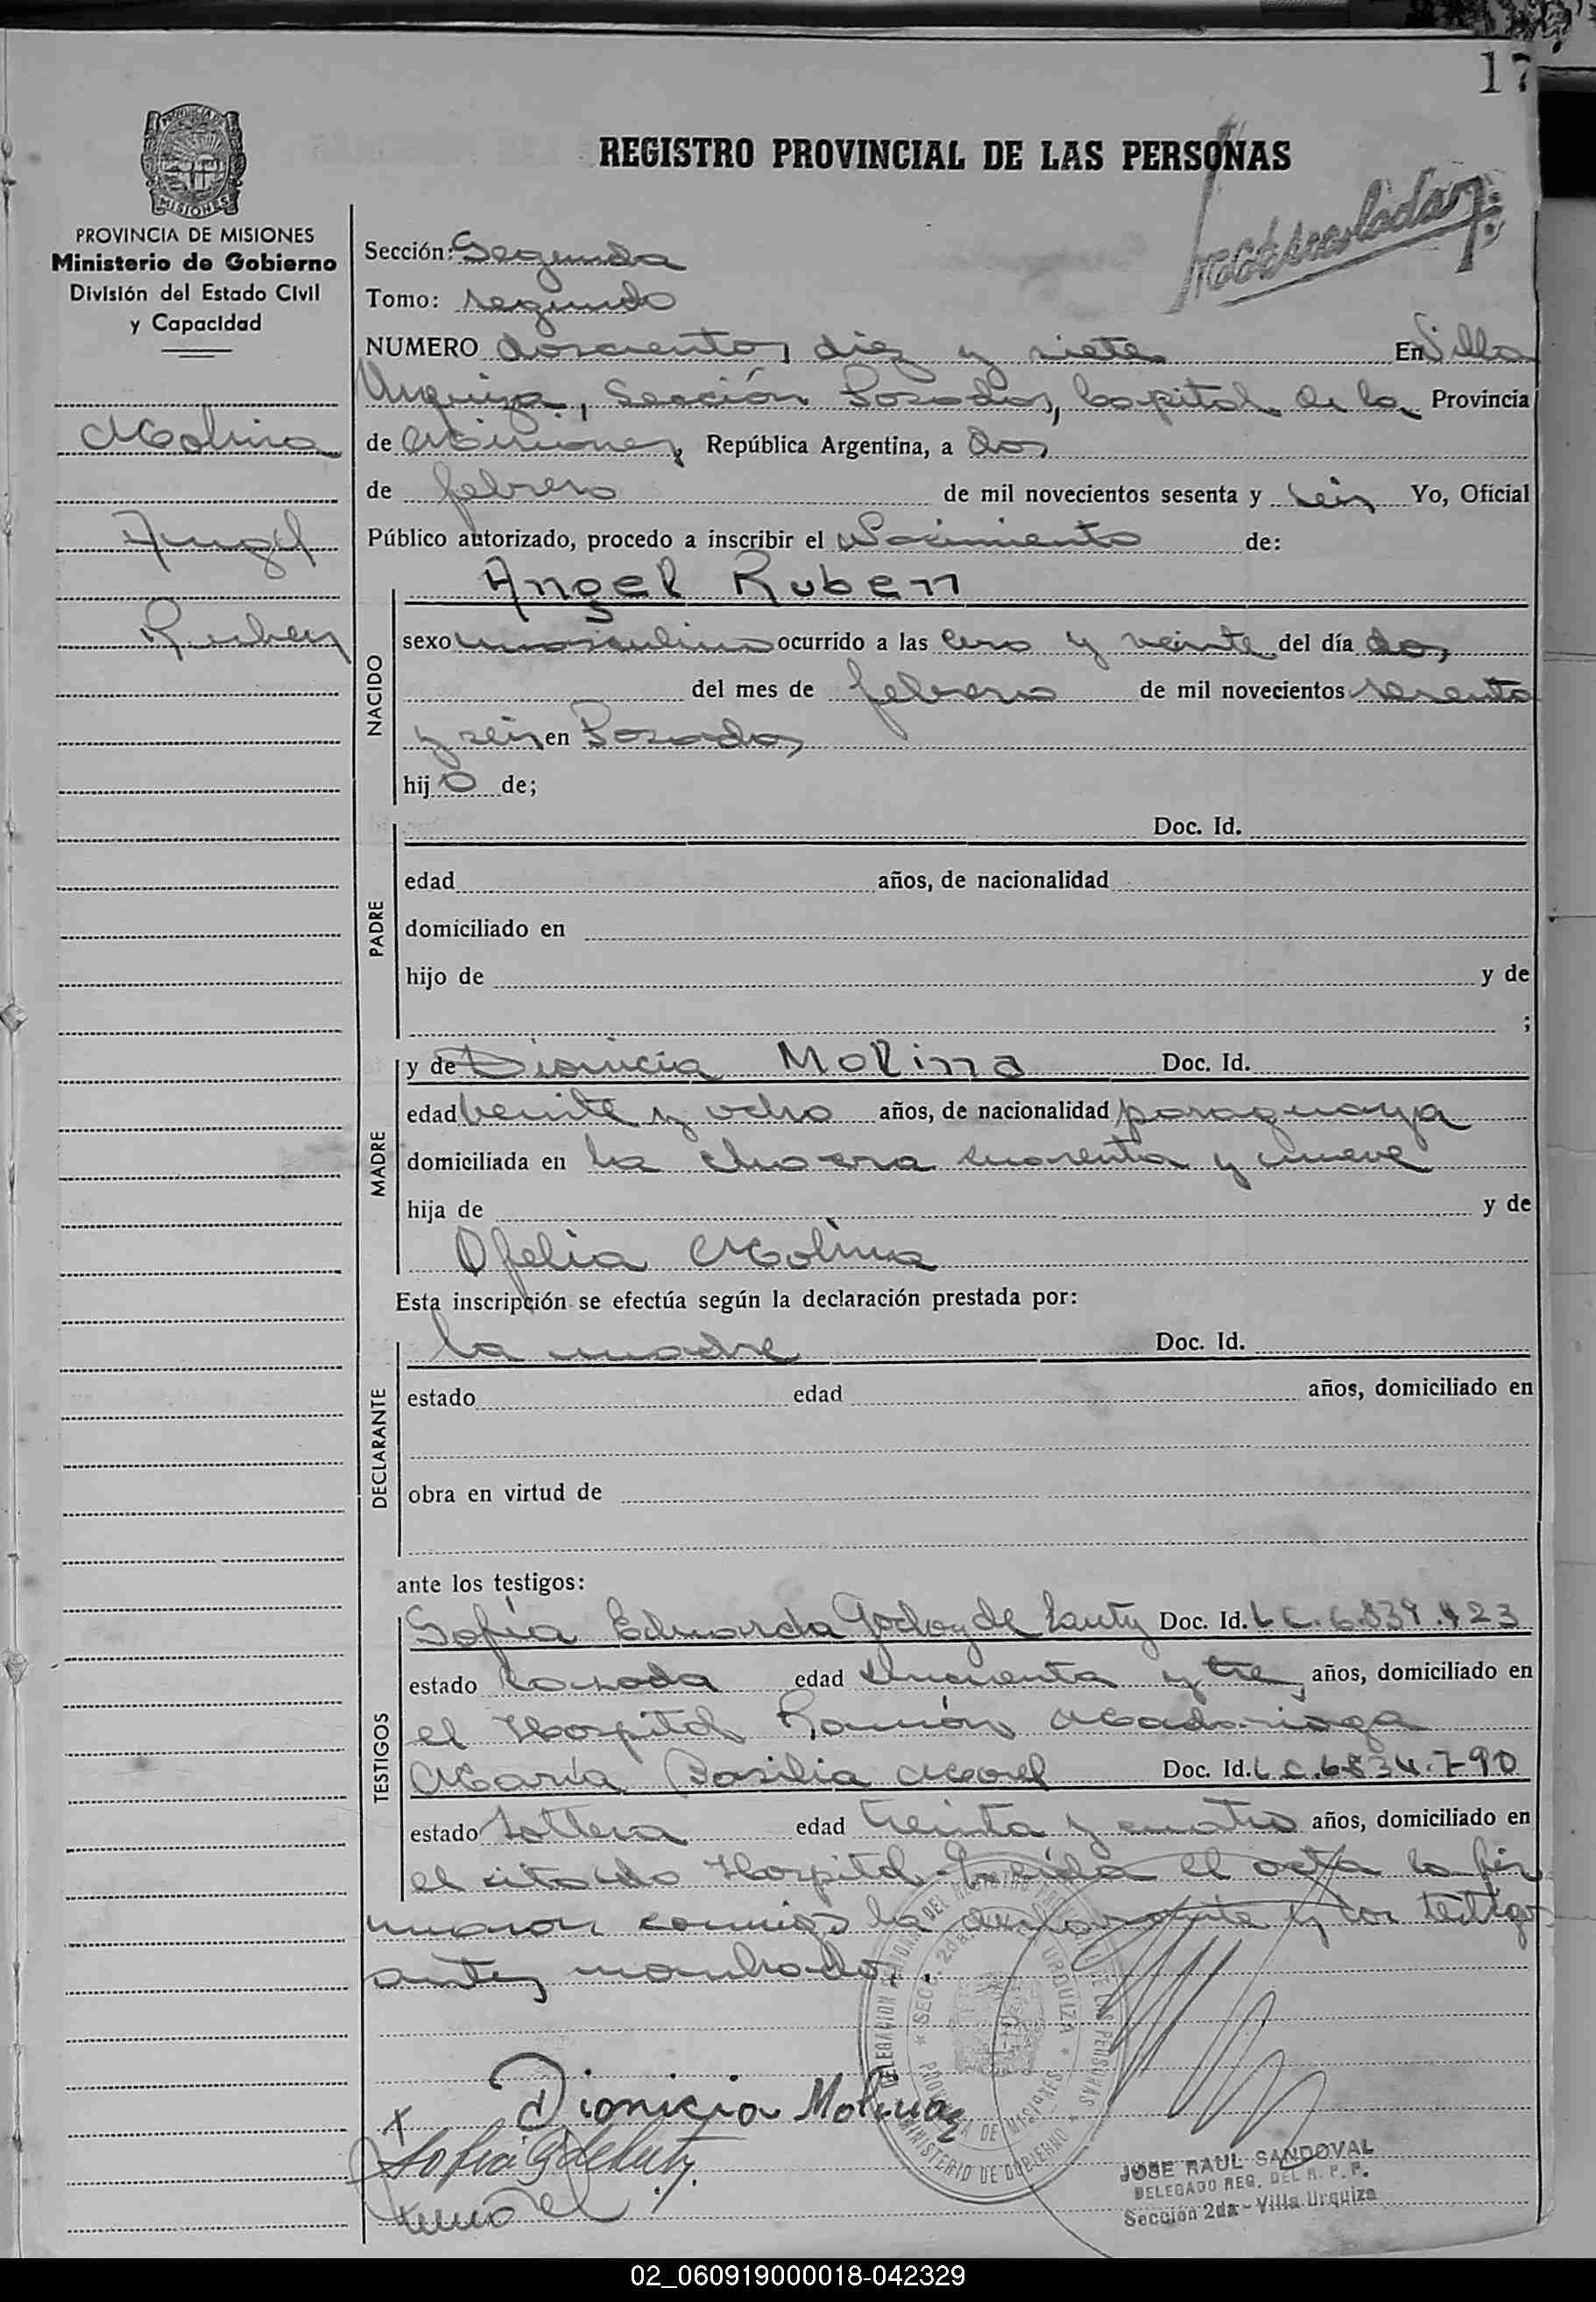 17
REGISTRO PROVINCIAL DE LAS PERSONAS
MISIONES
PROVINCIA DE MISIONES
Ministerio de Gobierno
División del Estado Civil
y Capacidad
Molina
Angel
Ruben
Sección: Segunda
Tomo: segundo
NUMERO doscientos diez y siete En Villa
Urquiza, Sección Posadas, Capital de la Provincia
de Misiones, República Argentina, a dos
de febrero de mil novecientos sesenta y seis Yo, Oficial
Público autorizado, procedo a inscribir el Nacimiento de:
Angel Ruben
NACIDO
sexo masculino ocurrido a las cero y veinte del día dos
del mes de febrero de mil novecientos sesenta
y seis en Posadas
hijo de;
PADRE
Doc. Id.
edad años, de nacionalidad
domiciliado en
hijo de y de
;
MADRE
y de Dionicia Molina Doc. Id.
edad veinte y ocho años, de nacionalidad paraguaya
domiciliada en la chacra cuarenta y nueve
hija de y de
Ofelia Molina
Esta inscripción se efectúa según la declaración prestada por:
DECLARANTE
la madre Doc. Id.
estado edad años, domiciliado en
obra en virtud de
ante los testigos:
TESTIGOS
Sofía Eduarda Godoy de Doc. Id. L C. 6.839.423
estado Casada edad cincuenta y tres años, domiciliado en
el Hospital Ramón Madariaga
María Basilia Morel Doc. Id. L C. 6.834.790
estado soltera edad treinta y cuatro años, domiciliado en
el citado Hospital. Leída el acta la fir
maron conmigo la declarante y los testigos
antes nombrados.
DELEGACION DEL REGISTRO DE LAS PERSONAS
SEC. 2da. URQUIZA
PROVINCIA DE MISIONES
MINISTERIO DE GOBIERNO
x Dionicia Molina
Sofia G de
JOSE RAUL SANDOVAL
DELEGADO REG. DEL R. P. P.
Sección 2da - Villa Urquiza
02_060919000018-042329